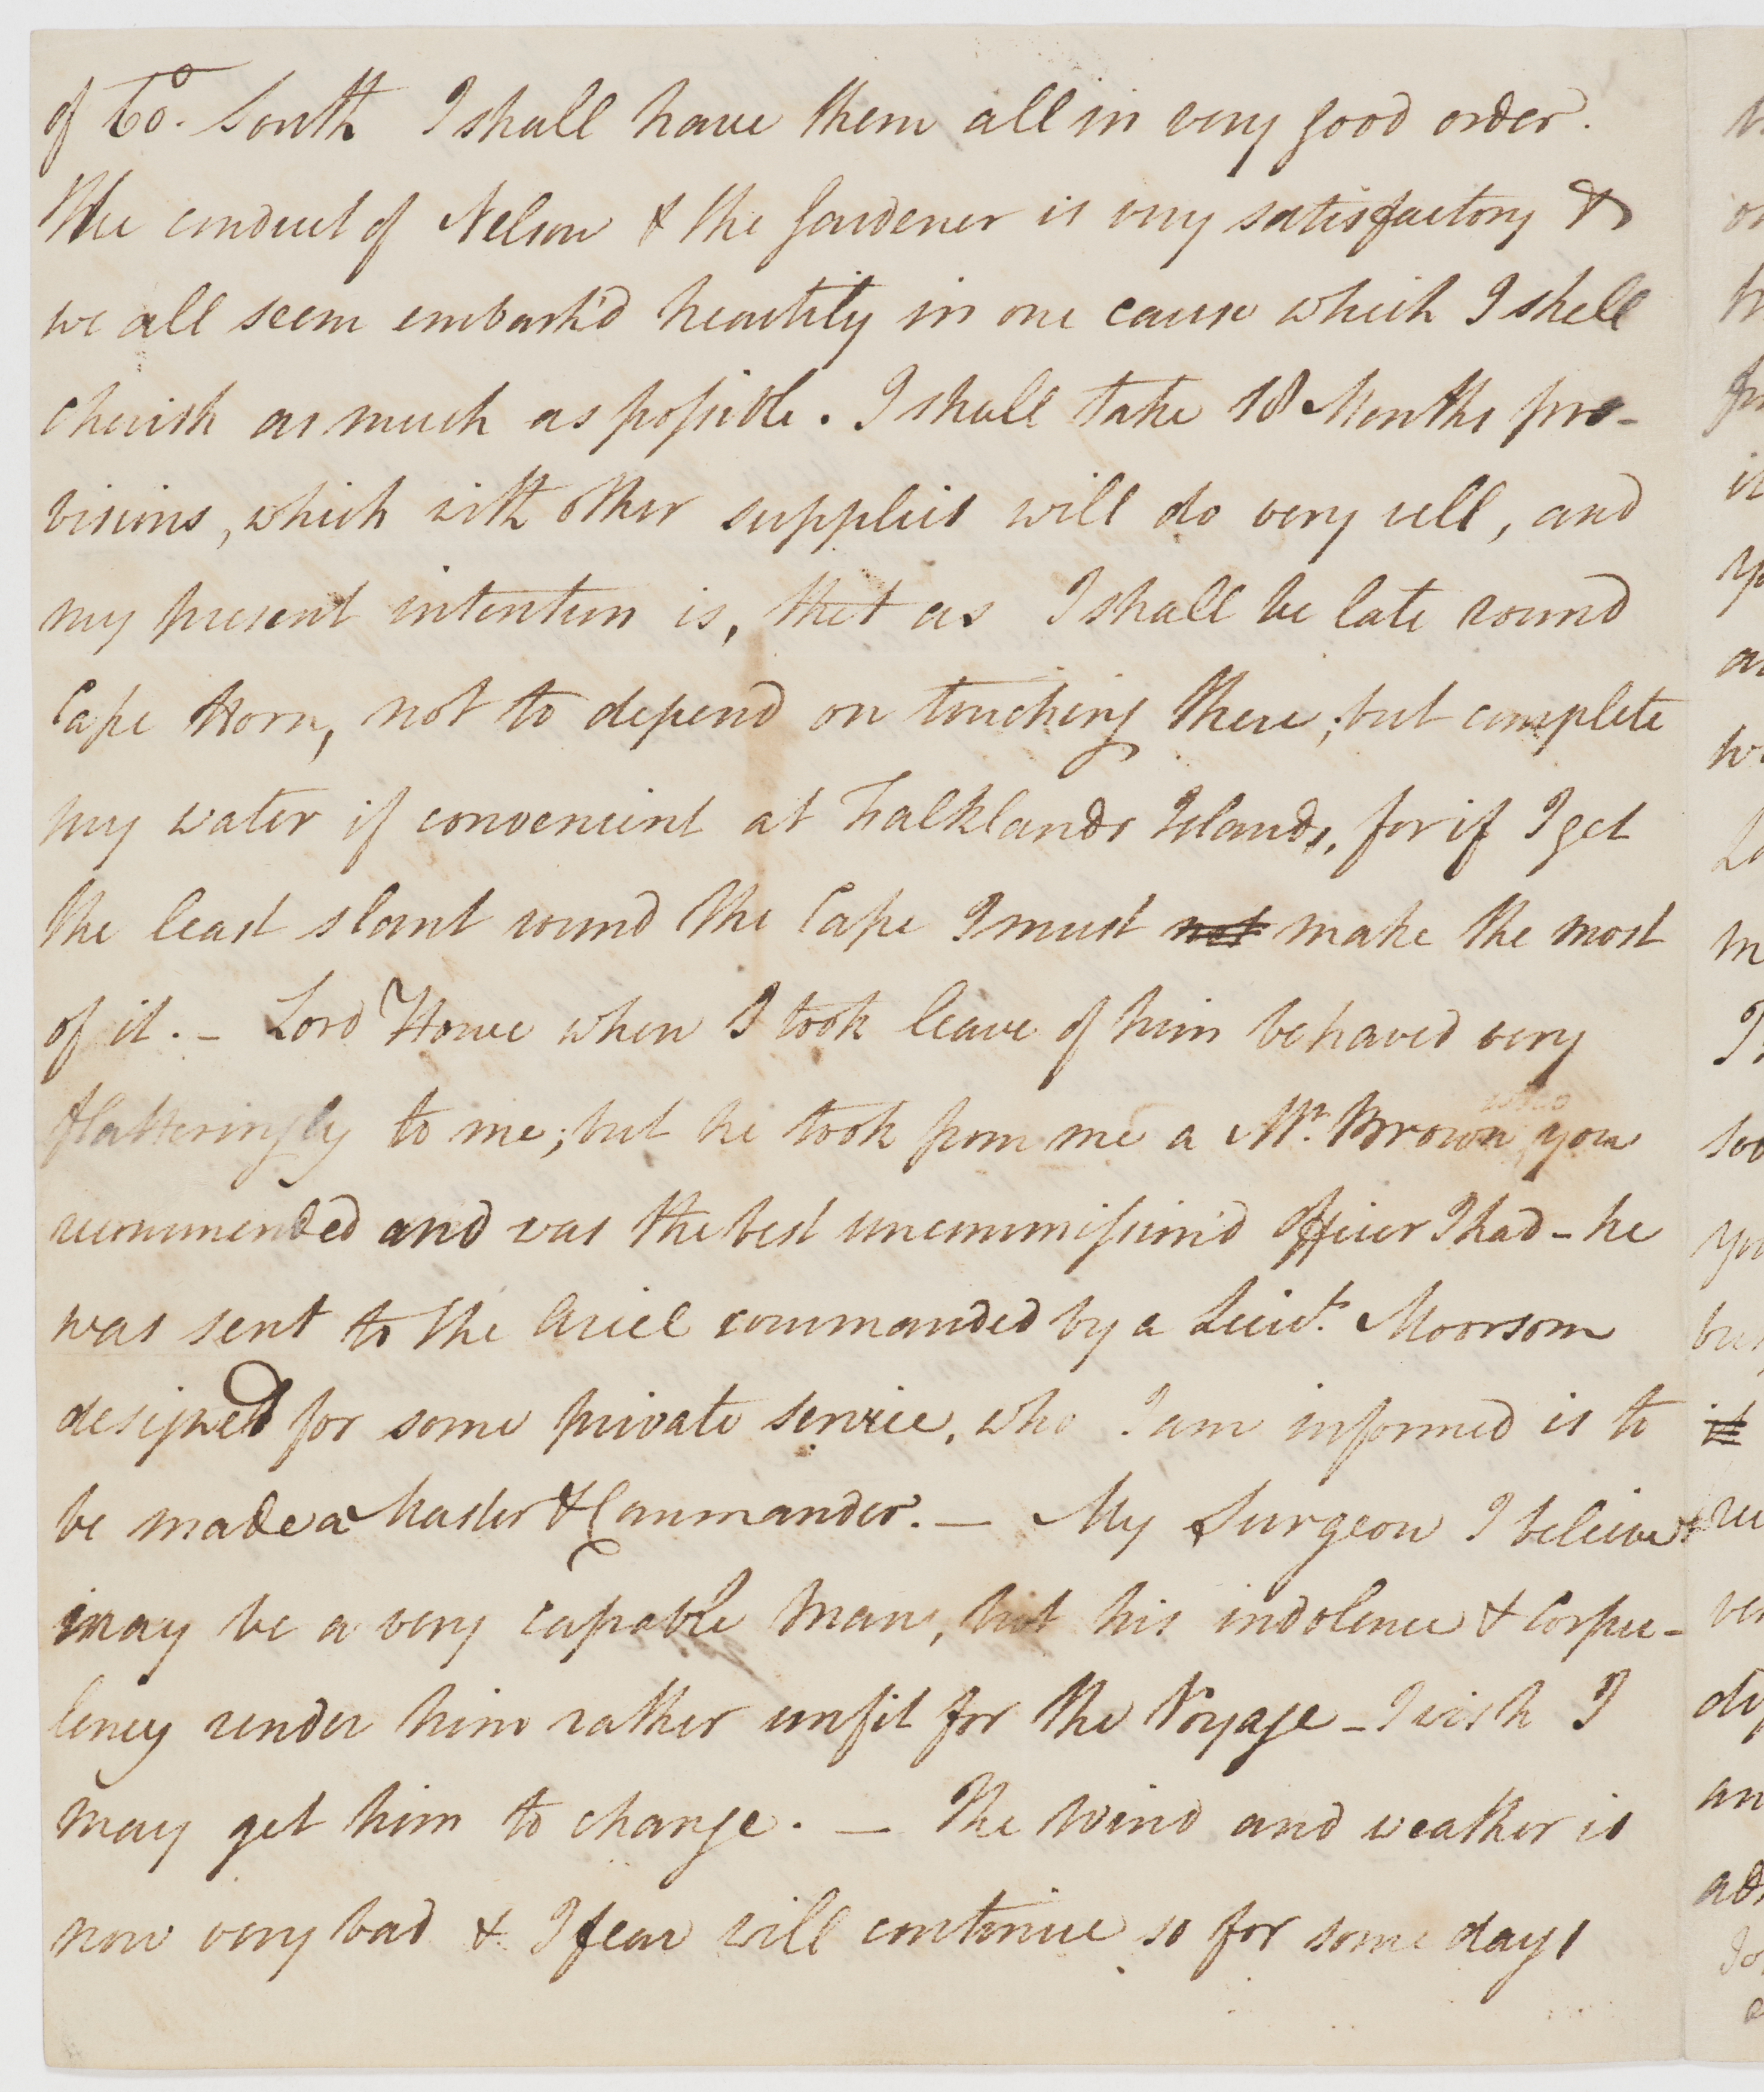 of 60°. South I shall have them all in very good order.
The conduct of Nelson & the Gardener is very satisfactory &
we all seem embark'd heartily in one cause which I shall
cherish as much as possible. I shall take 18 Months pro-
visions, which with other supplies will do very well, and
my present intention is, that as I shall be late round
Cape Horn, not to depend on touching there; but complete
my water if convenient at Falklands Islands, for if I get
the least slant round the Cape I must not make the most
of it. - Lord Howe when I took leave of him behaved very
flatteringly to me; but he took from me a Mr. Brown who you
recommended and was the best uncommission'd officer I had - he
was sent to the Ariel commanded by a Lieut. Moorsom
designed for some private service, who I am informed is to
be made a Master & Commander. - My Surgeon I believe
may be a very capable man, but his indolence & corpu-
lency render him rather unfit for the Voyage - I wish I
may get him to change. - The Wind and weather is
now very bad & I fear will continue so for some days